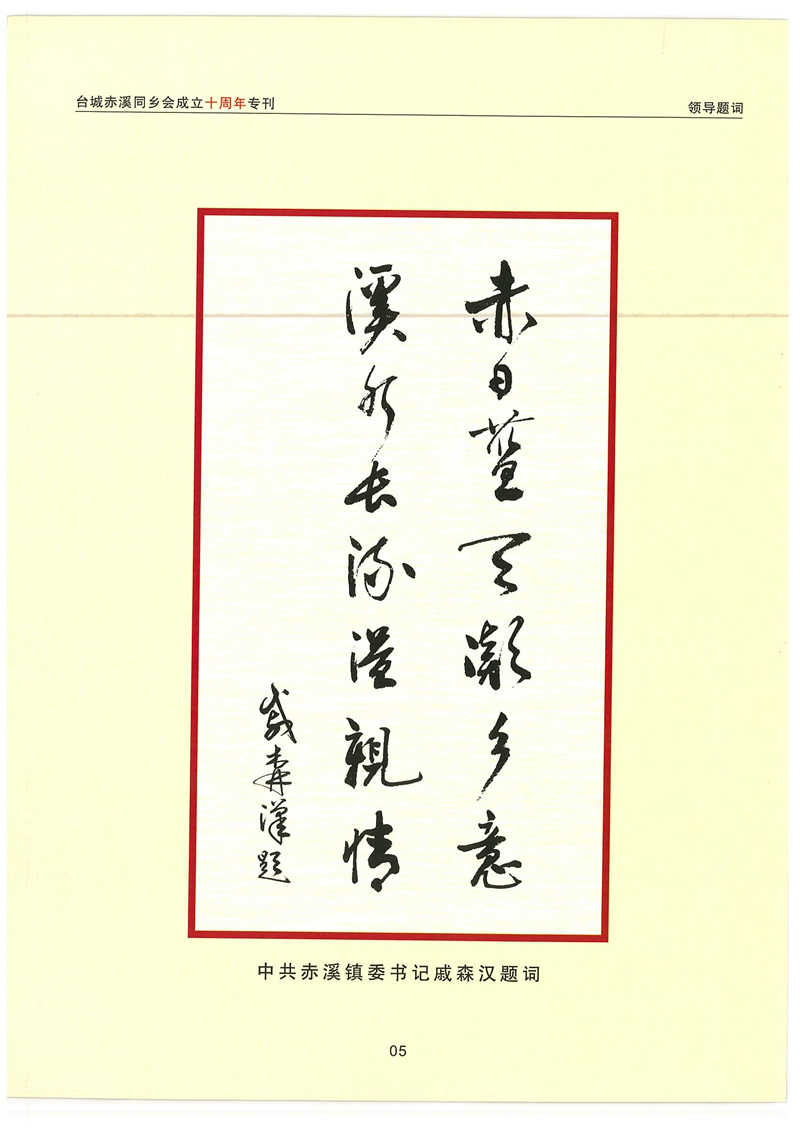 台城赤溪同乡会成立十周年专刊
领导题词
赤日蓝天乡意
溪水长流溢親情
戚森漢题
中共赤溪镇委书记戚森汉题词
05